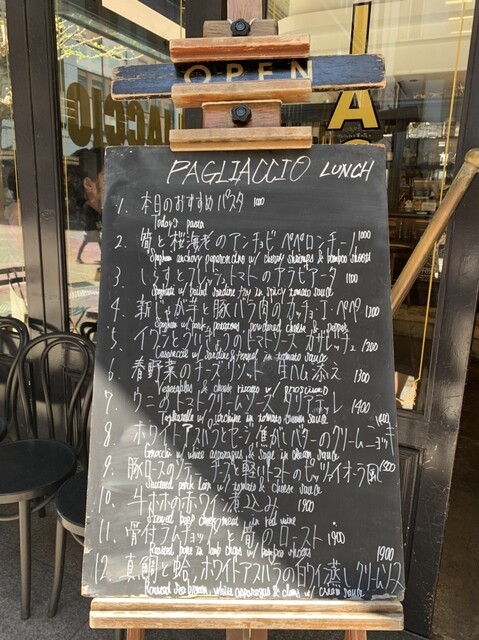 OPEN
PAGLIACCIO LUNCH
1. 本日のおすすめパスタ 1000
Today's pasta
2. 筍と桜海老のアンチョビペペロンチーノ 1000
Spaghetti anchovy peperoncino w/ cherry shrimps & bamboo shoots
3. しらすとフレッシュトマトのアラビアータ 1100
Spaghetti w/ boiled sardine fry in spicy tomato sauce
4. 新じゃが芋と豚バラ肉のカチョエペペ 1200
Spaghetti w/ pork, potatoes, powdered cheese & pepper
5. イワシとういきょうのトマトソース カサレッチェ 1200
Casarecce w/ sardine & fennel in tomato sauce
6. 春野菜のチーズリゾット 生ハム添え 1300
Vegetables & cheese risotto w/ prosciutto
7. ウニのトマトクリームソース タリアテッレ 1400
Tagliatelle w/ urchin in tomato cream sauce
8. ホワイトアスパラとセージ、焦がしバターのクリームニョッキ
Gnocchi w/ white asparagus & sage in cream sauce
9. 豚ロースのソテー チーズと軽いトマトのピッツァイオーラ風 1300
Sauteed pork loin w/ tomato & cheese sauce
10. 牛ホホの赤ワイン煮込み 1900
Stewed beef cheek meat in red wine
11. 骨付ラムチョップと筍のロースト 1900
Roasted bone in lamb chops w/ bamboo shoots
12. 真鯛と蛤、ホワイトアスパラの白ワイン蒸し クリームソース 1900
Steamed sea bream, white asparagus & clams w/ cream sauce